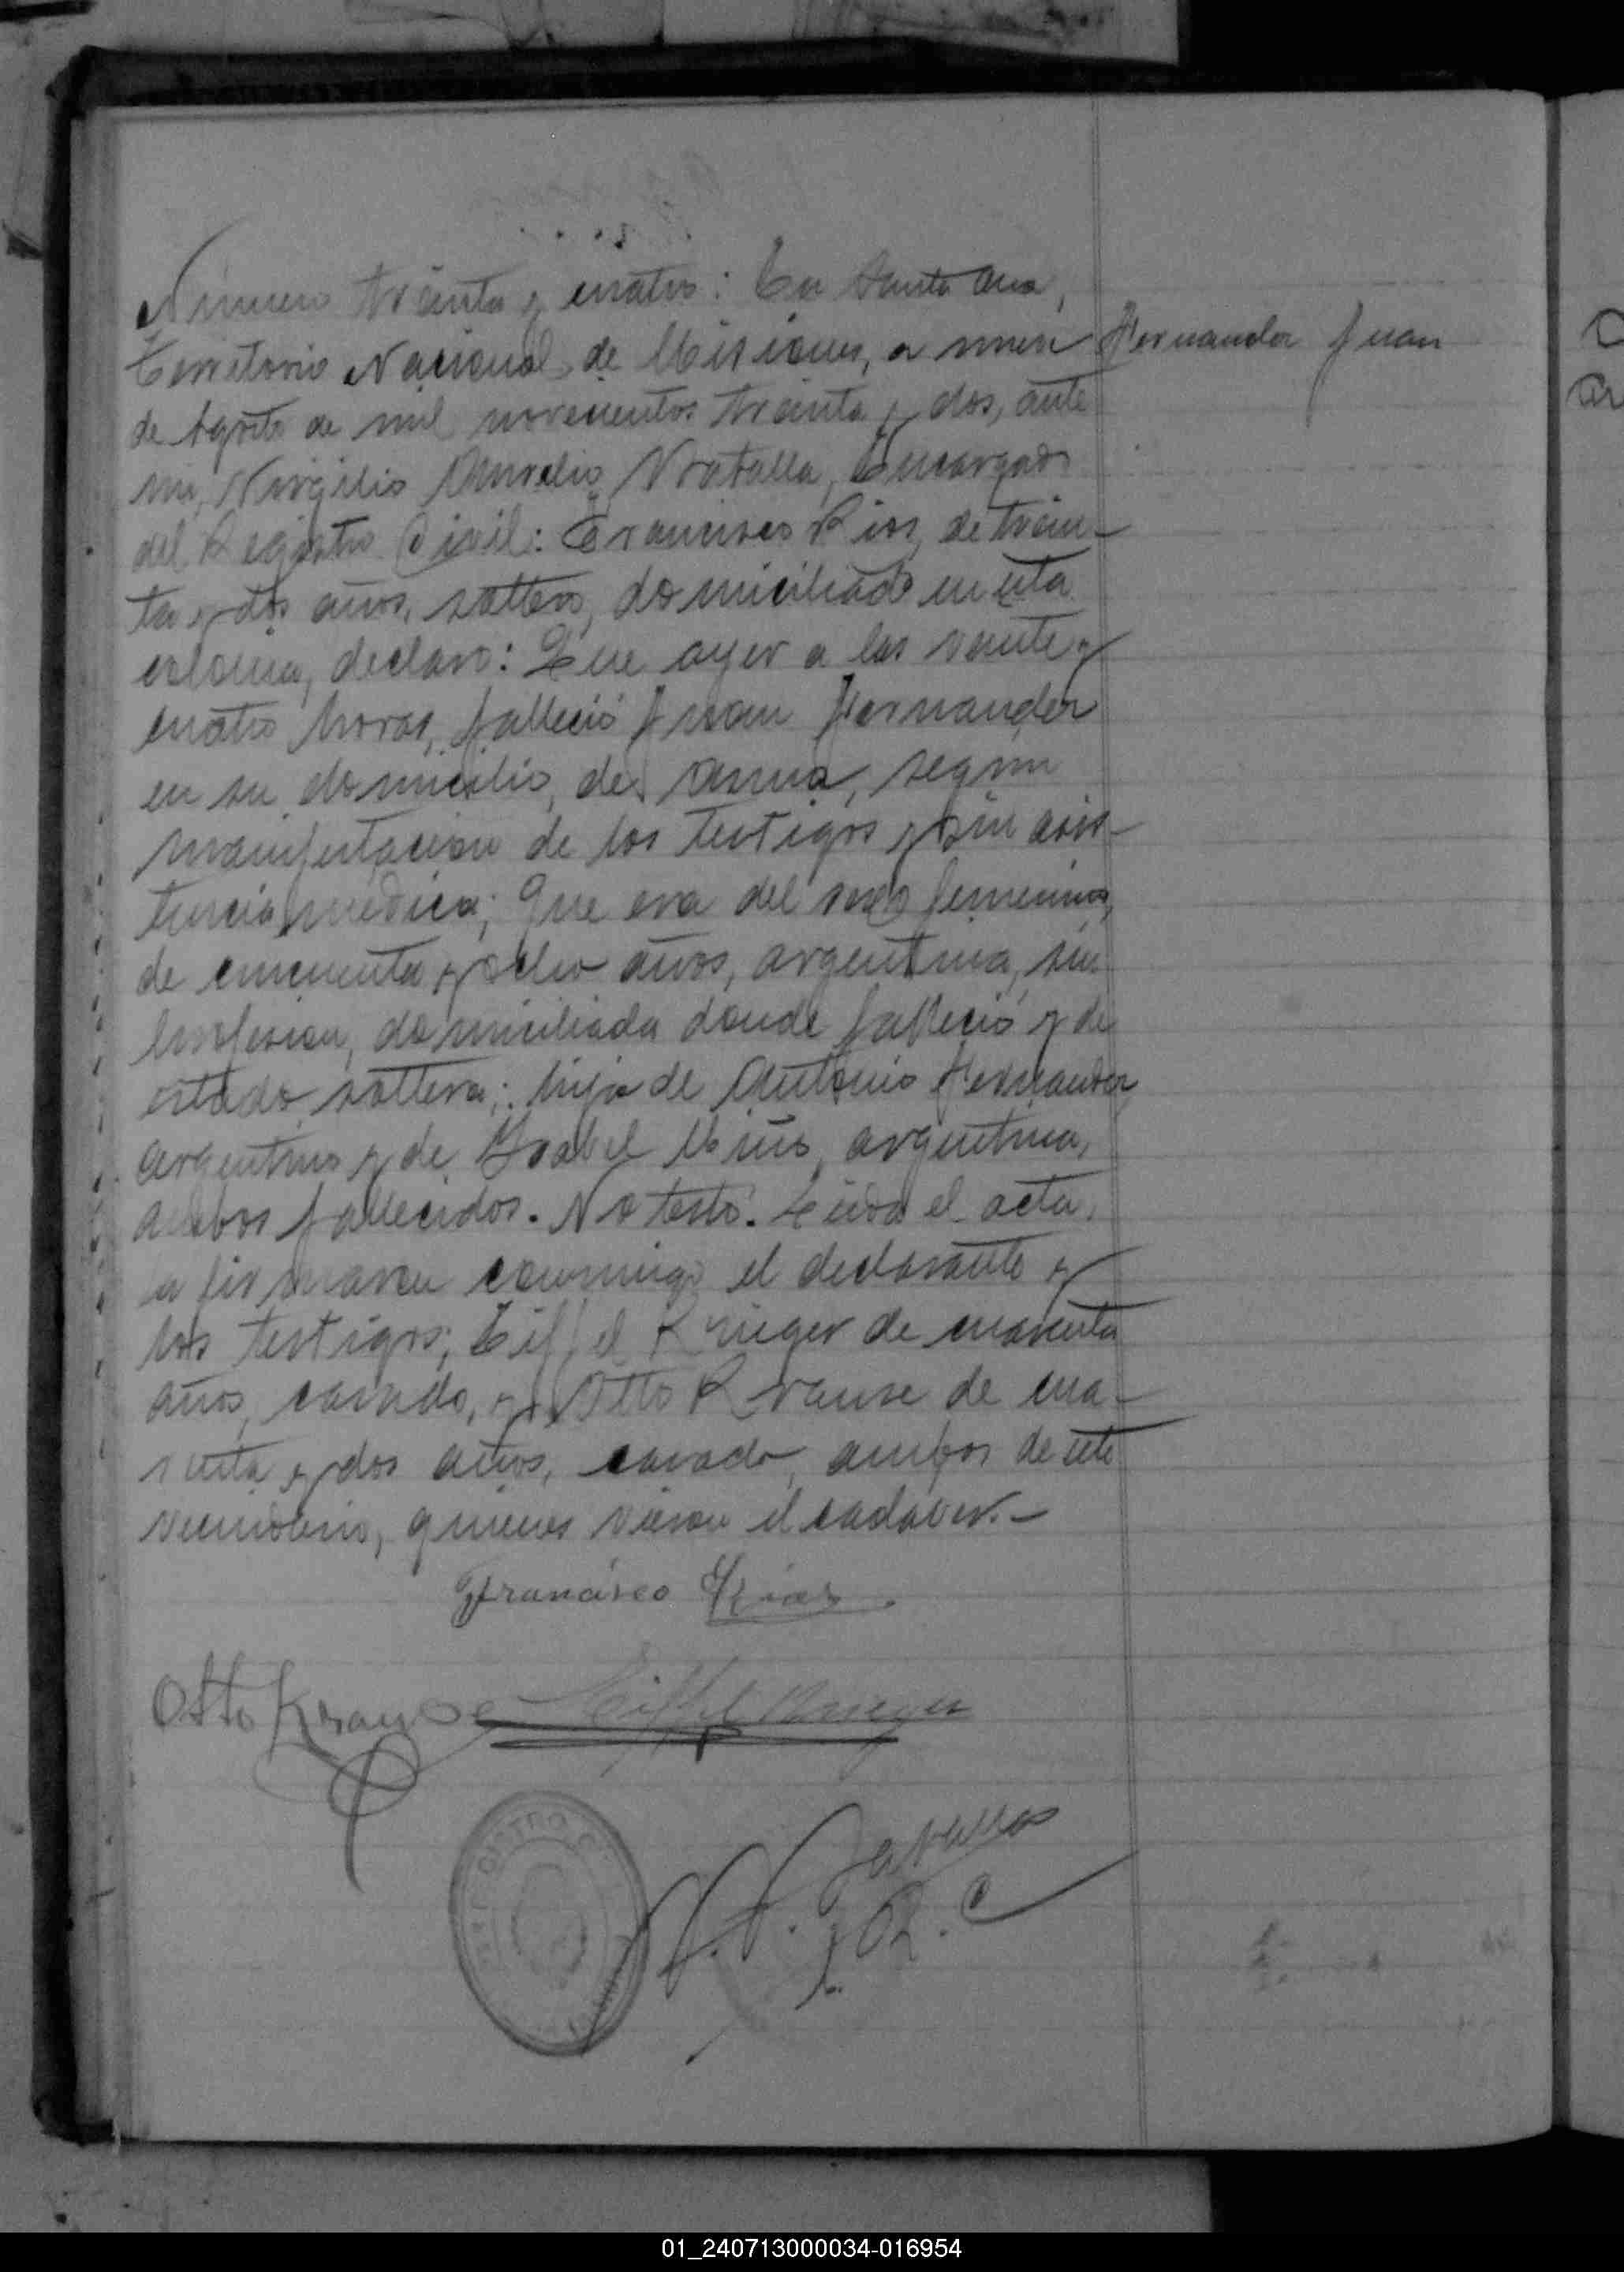 Número treinta y cuatro: En Santa Ana,
Territorio Nacional de Misiones, a nueve
Hernandez Juan
de Agosto de mil novecientos treinta y dos, ante
mi, Virgilio Aurelio Vratalla, Encargado
del Registro Civil: Francisco Rios, de trein-
ta y dos años, soltero, domiciliado en esta
colonia, declaro: Que ayer a las veinte y
cuatro horas, falleció Juan Hernandez
en su domicilio, de asma, según
manifestacion de los testigos y sin asis-
tencia médica; Que era del sexo femenino,
de cincuenta y ocho años, argentina, sin
profesion, domiciliada donde falleció y de
estado soltera; hija de Antonio Hernandez
argentino y de Ysabel Miño, argentina,
ambos fallecidos. No testó. Leida el acta,
la firmaron conmigo el declarante y
los testigos; Eiffel Krieger de cuarenta
años, casado, y Otto Krause de cua-
renta y dos años, casado, ambos de este
vecindario, quienes vieron el cadaver.-
Francisco Rios
Otto Krause Eiffel Krieger
REGISTRO CIVIL
J. R. C
01_240713000034-016954